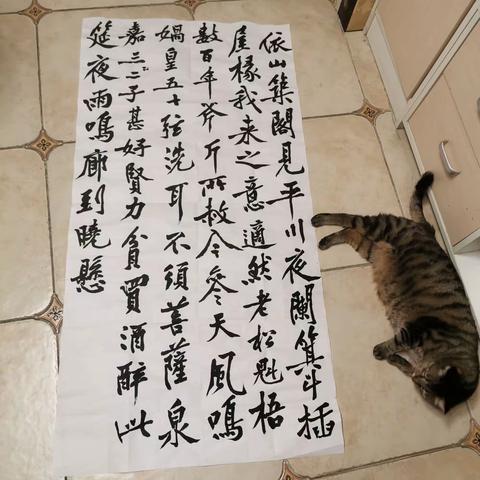 依山築閣見平川夜闌箕斗插
屋椽我来之意適然老松魁梧
數百年斧斤所赦今參天風鳴
媧皇五十弦洗耳不須菩薩泉
嘉三二子甚好賢力貧買酒醉此
筵夜雨鳴廊到曉懸